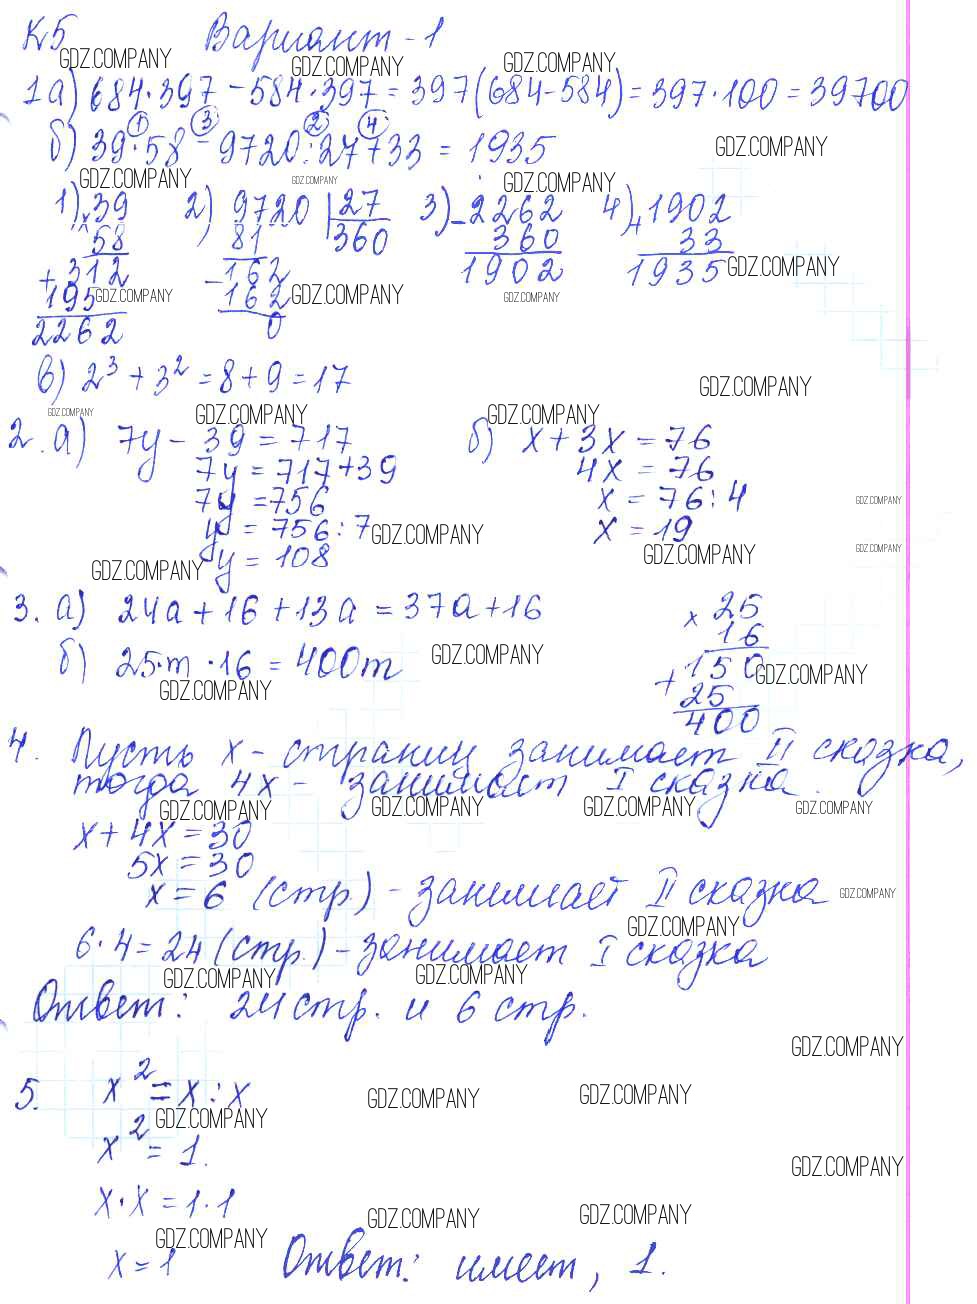 К5 Вариант - 1
GDZ.COMPANY GDZ.COMPANY GDZ.COMPANY
1 а) 684·397 - 584·397 = 397(684-584) = 397·100 = 39700
① ③ ② ④
б) 39·58 - 9720:27+33 = 1935 GDZ.COMPANY
GDZ.COMPANY GDZ.COMPANY GDZ.COMPANY
1) ×39 2) 9720 | 27 3) -2262 4) +1902
58 81 360 360 33
+312 -162 1902 1935 GDZ.COMPANY
195 GDZ.COMPANY 162 GDZ.COMPANY GDZ.COMPANY
2262 0
в) 2³ + 3² = 8 + 9 = 17 GDZ.COMPANY
GDZ.COMPANY GDZ.COMPANY GDZ.COMPANY
2. а) 7y - 39 = 717 б) x + 3x = 76
7y = 717+39 4x = 76
7y = 756 x = 76:4 GDZ.COMPANY
y = 756:7 GDZ.COMPANY x = 19
y = 108 GDZ.COMPANY GDZ.COMPANY
GDZ.COMPANY
3. а) 24а + 16 + 13а = 37а + 16 ×25
16
б) 25·m·16 = 400m GDZ.COMPANY 150 GDZ.COMPANY
GDZ.COMPANY +25
400
4. Пусть x - страниц занимает II сказка,
тогда 4x - занимает I сказка.
GDZ.COMPANY GDZ.COMPANY GDZ.COMPANY GDZ.COMPANY
x + 4x = 30
5x = 30
x = 6 (стр.) - занимает II сказка GDZ.COMPANY
GDZ.COMPANY
6·4 = 24 (стр.) - занимает I сказка
GDZ.COMPANY GDZ.COMPANY
Ответ: 24 стр. и 6 стр.
GDZ.COMPANY
5. x² = x : x GDZ.COMPANY GDZ.COMPANY
GDZ.COMPANY
x² = 1.
GDZ.COMPANY
x·x = 1·1
GDZ.COMPANY GDZ.COMPANY GDZ.COMPANY
x = 1 Ответ: имеет, 1.